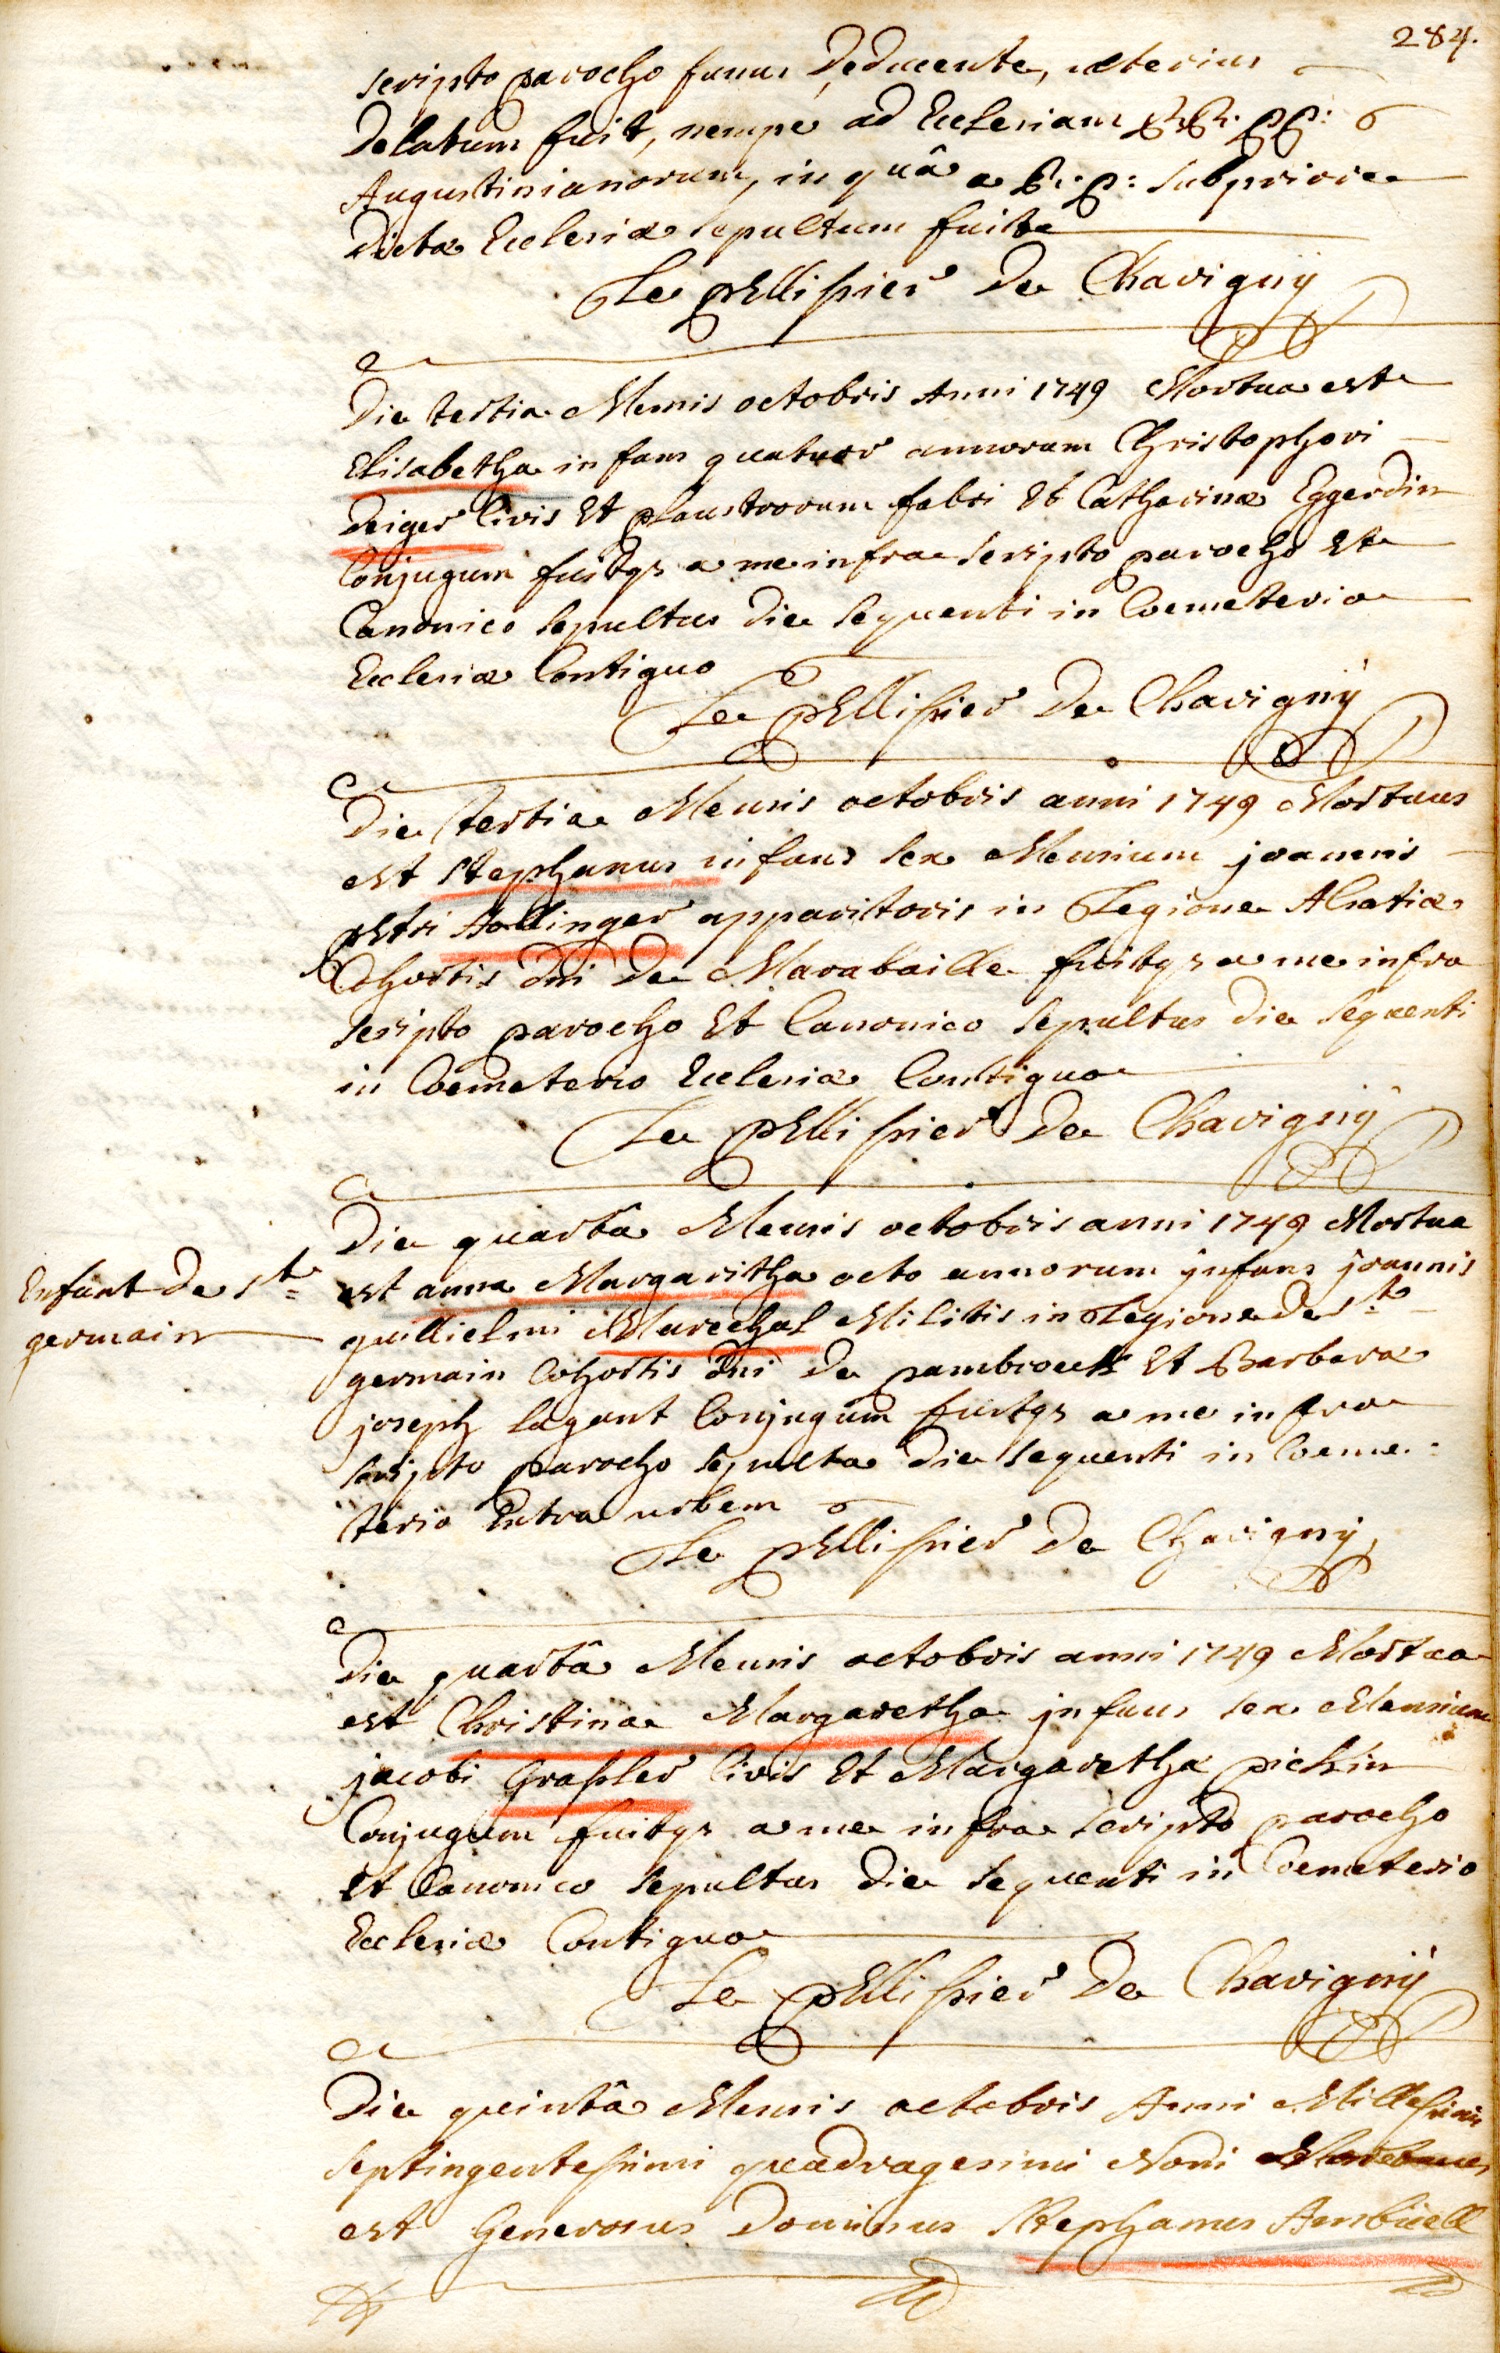 284.
scripto parocho funus deducente, ulterius
delatum fuit, nempe ad Ecclesiam RR. PP:
Augustinianorum, in quâ a R. P: subpriore
dictæ Ecclesiæ sepultum fuit
Le pEllissier De Chavignÿ
Die tertia Mensis octobris Anni 1749 Mortua est
Elisabetha infans quatuor annorum Christophori
Deiger Civis Et plaustrorum fabri Et Catharinæ Eggerdin
Conjugum fuitqs a me infra scripto parocho Et
Canonico sepultus die sequenti in Coemeterio
Ecclesiæ Contiguo
Le pEllissier De Chavignÿ
Die tertia Mensis octobris anni 1749 Mortuus
est Stephanus infans sex Mensium joannis
pEtri Hollinger apparitoris in Legione Alsatiæ
Cohortis dni De Marabaille fuitqs a me infra
scripto parocho Et Canonico sepultus die sequenti
in Coemeterio Ecclesiæ Contiguo
Le pEllissier De Chavignÿ
Enfant de St
germain
Die quartâ Mensis octobris anni 1749 Mortua
est anna Margaritha octo annorum jnfans joannis
guillielmi Marechal Militis in Legione de St
germain Cohortis dni de pambroeck Et Barbara
joseph lagant Conjugum fuitqs a me infra
scripto parocho sepulta die sequenti in Coeme:
terio Extra urbem
Le pEllissier De Chavignÿ
Die quartâ Mensis octobris anni 1749 Mortua
est Christina Margaretha jnfans sex Mensium
jacobi Grassler Civis Et Margaretha pickin
Conjugum fuitqs a me infra scripto parocho
Et Canonico sepultus die sequenti in Coemeterio
Ecclesiæ Contiguo
Le pEllissier De Chavignÿ
Die quintâ Mensis octobris Anni Millesimi
septingentesimi quadragesimi Noni Mortuus
est Generosus Dominus Stephanus Ambüell